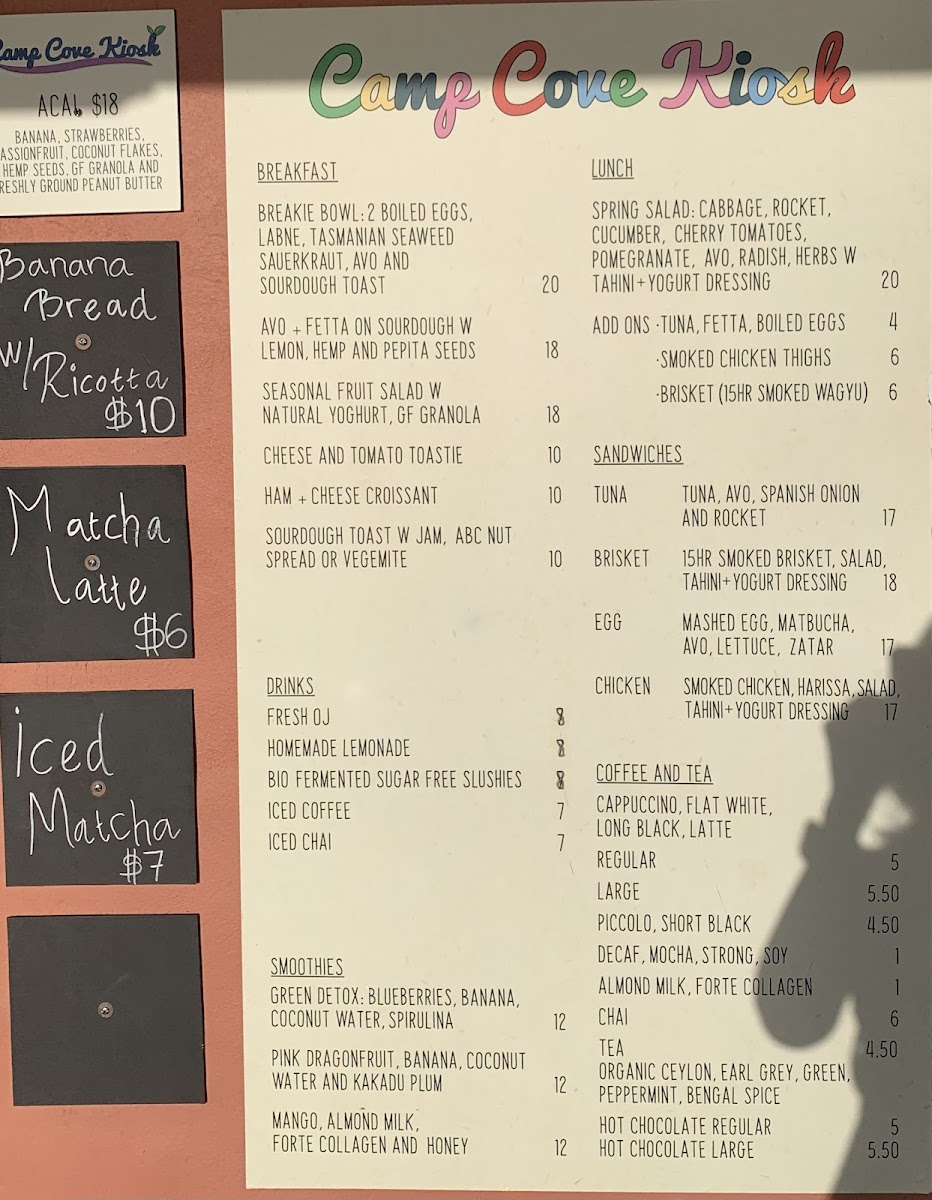 Camp Cove Kiosk
ACAI $18
BANANA, STRAWBERRIES,
ASSIONFRUIT, COCONUT FLAKES,
HEMP SEEDS, GF GRANOLA AND
RESHLY GROUND PEANUT BUTTER
Banana
Bread
w/Ricotta
$10
Matcha
Latte
$6
Iced
Matcha
$7
Camp Cove Kiosk
BREAKFAST
BREAKIE BOWL: 2 BOILED EGGS,
LABNE, TASMANIAN SEAWEED
SAUERKRAUT, AVO AND
SOURDOUGH TOAST 20
AVO + FETTA ON SOURDOUGH W
LEMON, HEMP AND PEPITA SEEDS 18
SEASONAL FRUIT SALAD W
NATURAL YOGHURT, GF GRANOLA 18
CHEESE AND TOMATO TOASTIE 10
HAM + CHEESE CROISSANT 10
SOURDOUGH TOAST W JAM, ABC NUT
SPREAD OR VEGEMITE 10
DRINKS
FRESH OJ 8
HOMEMADE LEMONADE 8
BIO FERMENTED SUGAR FREE SLUSHIES 8
ICED COFFEE 7
ICED CHAI 7
SMOOTHIES
GREEN DETOX: BLUEBERRIES, BANANA,
COCONUT WATER, SPIRULINA 12
PINK DRAGONFRUIT, BANANA, COCONUT
WATER AND KAKADU PLUM 12
MANGO, ALMOND MILK,
FORTE COLLAGEN AND HONEY 12
LUNCH
SPRING SALAD: CABBAGE, ROCKET,
CUCUMBER, CHERRY TOMATOES,
POMEGRANATE, AVO, RADISH, HERBS W
TAHINI+YOGURT DRESSING 20
ADD ONS ·TUNA, FETTA, BOILED EGGS 4
·SMOKED CHICKEN THIGHS 6
·BRISKET (15HR SMOKED WAGYU) 6
SANDWICHES
TUNA TUNA, AVO, SPANISH ONION
AND ROCKET 17
BRISKET 15HR SMOKED BRISKET, SALAD,
TAHINI+YOGURT DRESSING 18
EGG MASHED EGG, MATBUCHA,
AVO, LETTUCE, ZATAR 17
CHICKEN SMOKED CHICKEN, HARISSA, SALAD,
TAHINI+YOGURT DRESSING 17
COFFEE AND TEA
CAPPUCCINO, FLAT WHITE,
LONG BLACK, LATTE
REGULAR 5
LARGE 5.50
PICCOLO, SHORT BLACK 4.50
DECAF, MOCHA, STRONG, SOY 1
ALMOND MILK, FORTE COLLAGEN 1
CHAI 6
TEA 4.50
ORGANIC CEYLON, EARL GREY, GREEN,
PEPPERMINT, BENGAL SPICE
HOT CHOCOLATE REGULAR 5
HOT CHOCOLATE LARGE 5.50